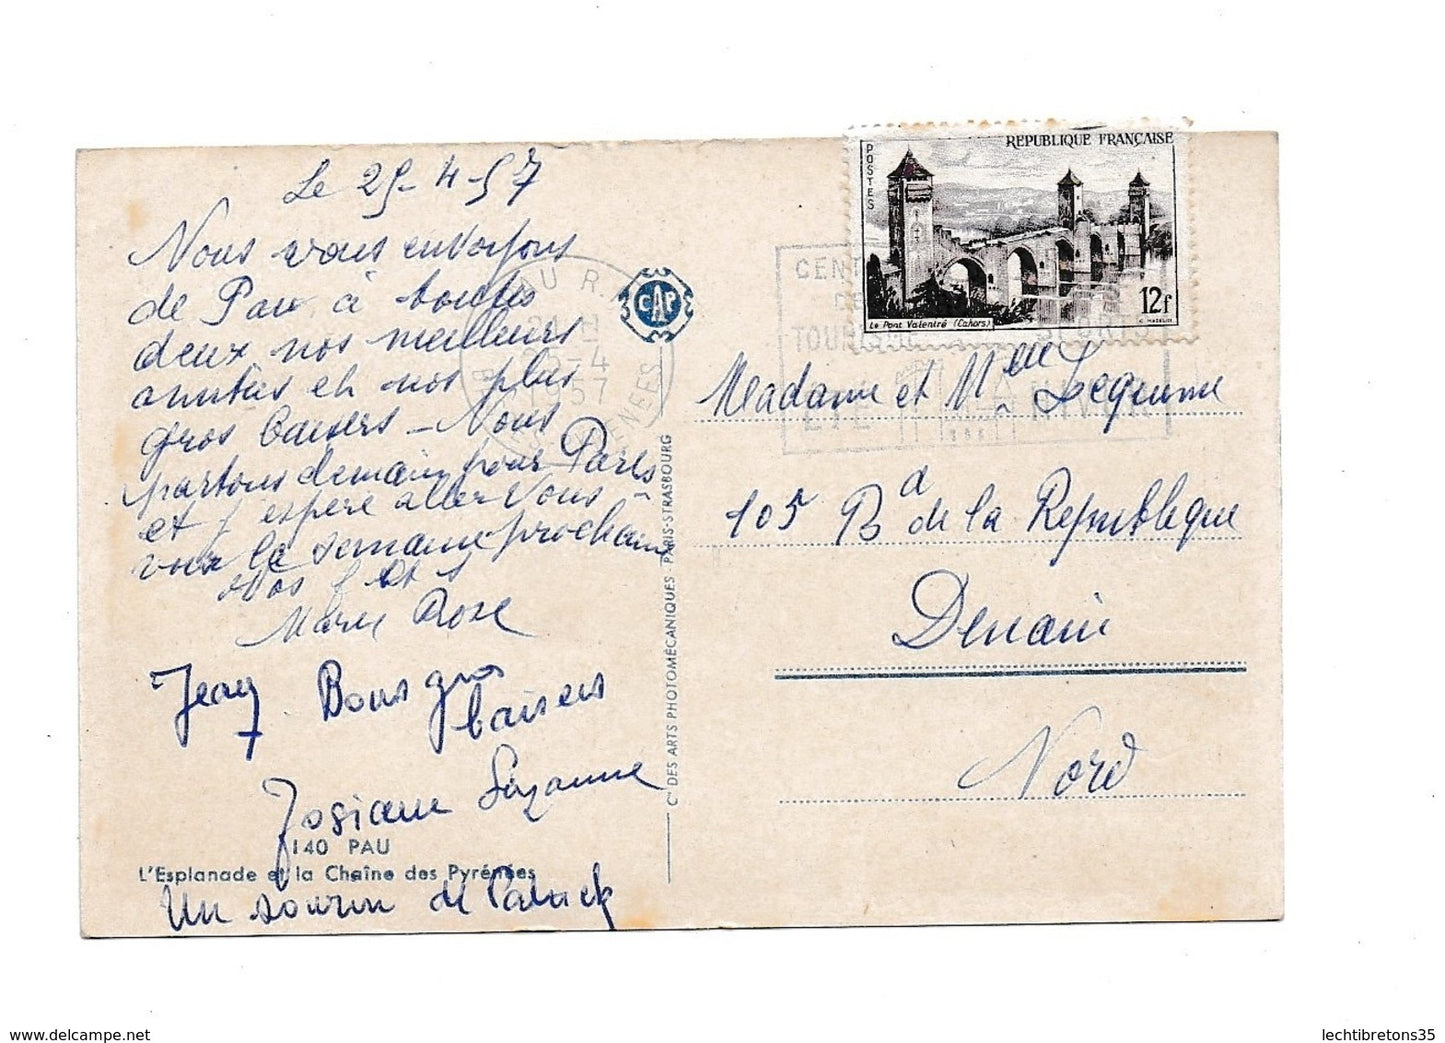 Le 25-4-57
Nous vous envoyons
de Pau à toutes
deux nos meilleurs
amitiés et nos plus
gros baisers - Nous
partons demain pour Paris
et j'espère aller vous
voir la semaine prochaine
Vos
Marie Rose
Jeany Bons gros
baisers
Josiane Suzanne
140 PAU
L'Esplanade et la Chaîne des Pyrénées
Un sourire de Patrick
CAP
PAU R.P.
25-4
1957
Cie DES ARTS PHOTOMÉCANIQUES - PARIS-STRASBOURG
REPUBLIQUE FRANÇAISE
POSTES
Le Pont Valentré (Cahors)
12f
CENT
DE
TOURISME
SPORTS
ÉTÉ
HIVER
Madame et Melle Lequenne
105 Bd de la Republique
Denain
Nord
www.delcampe.net
lechtibretons35